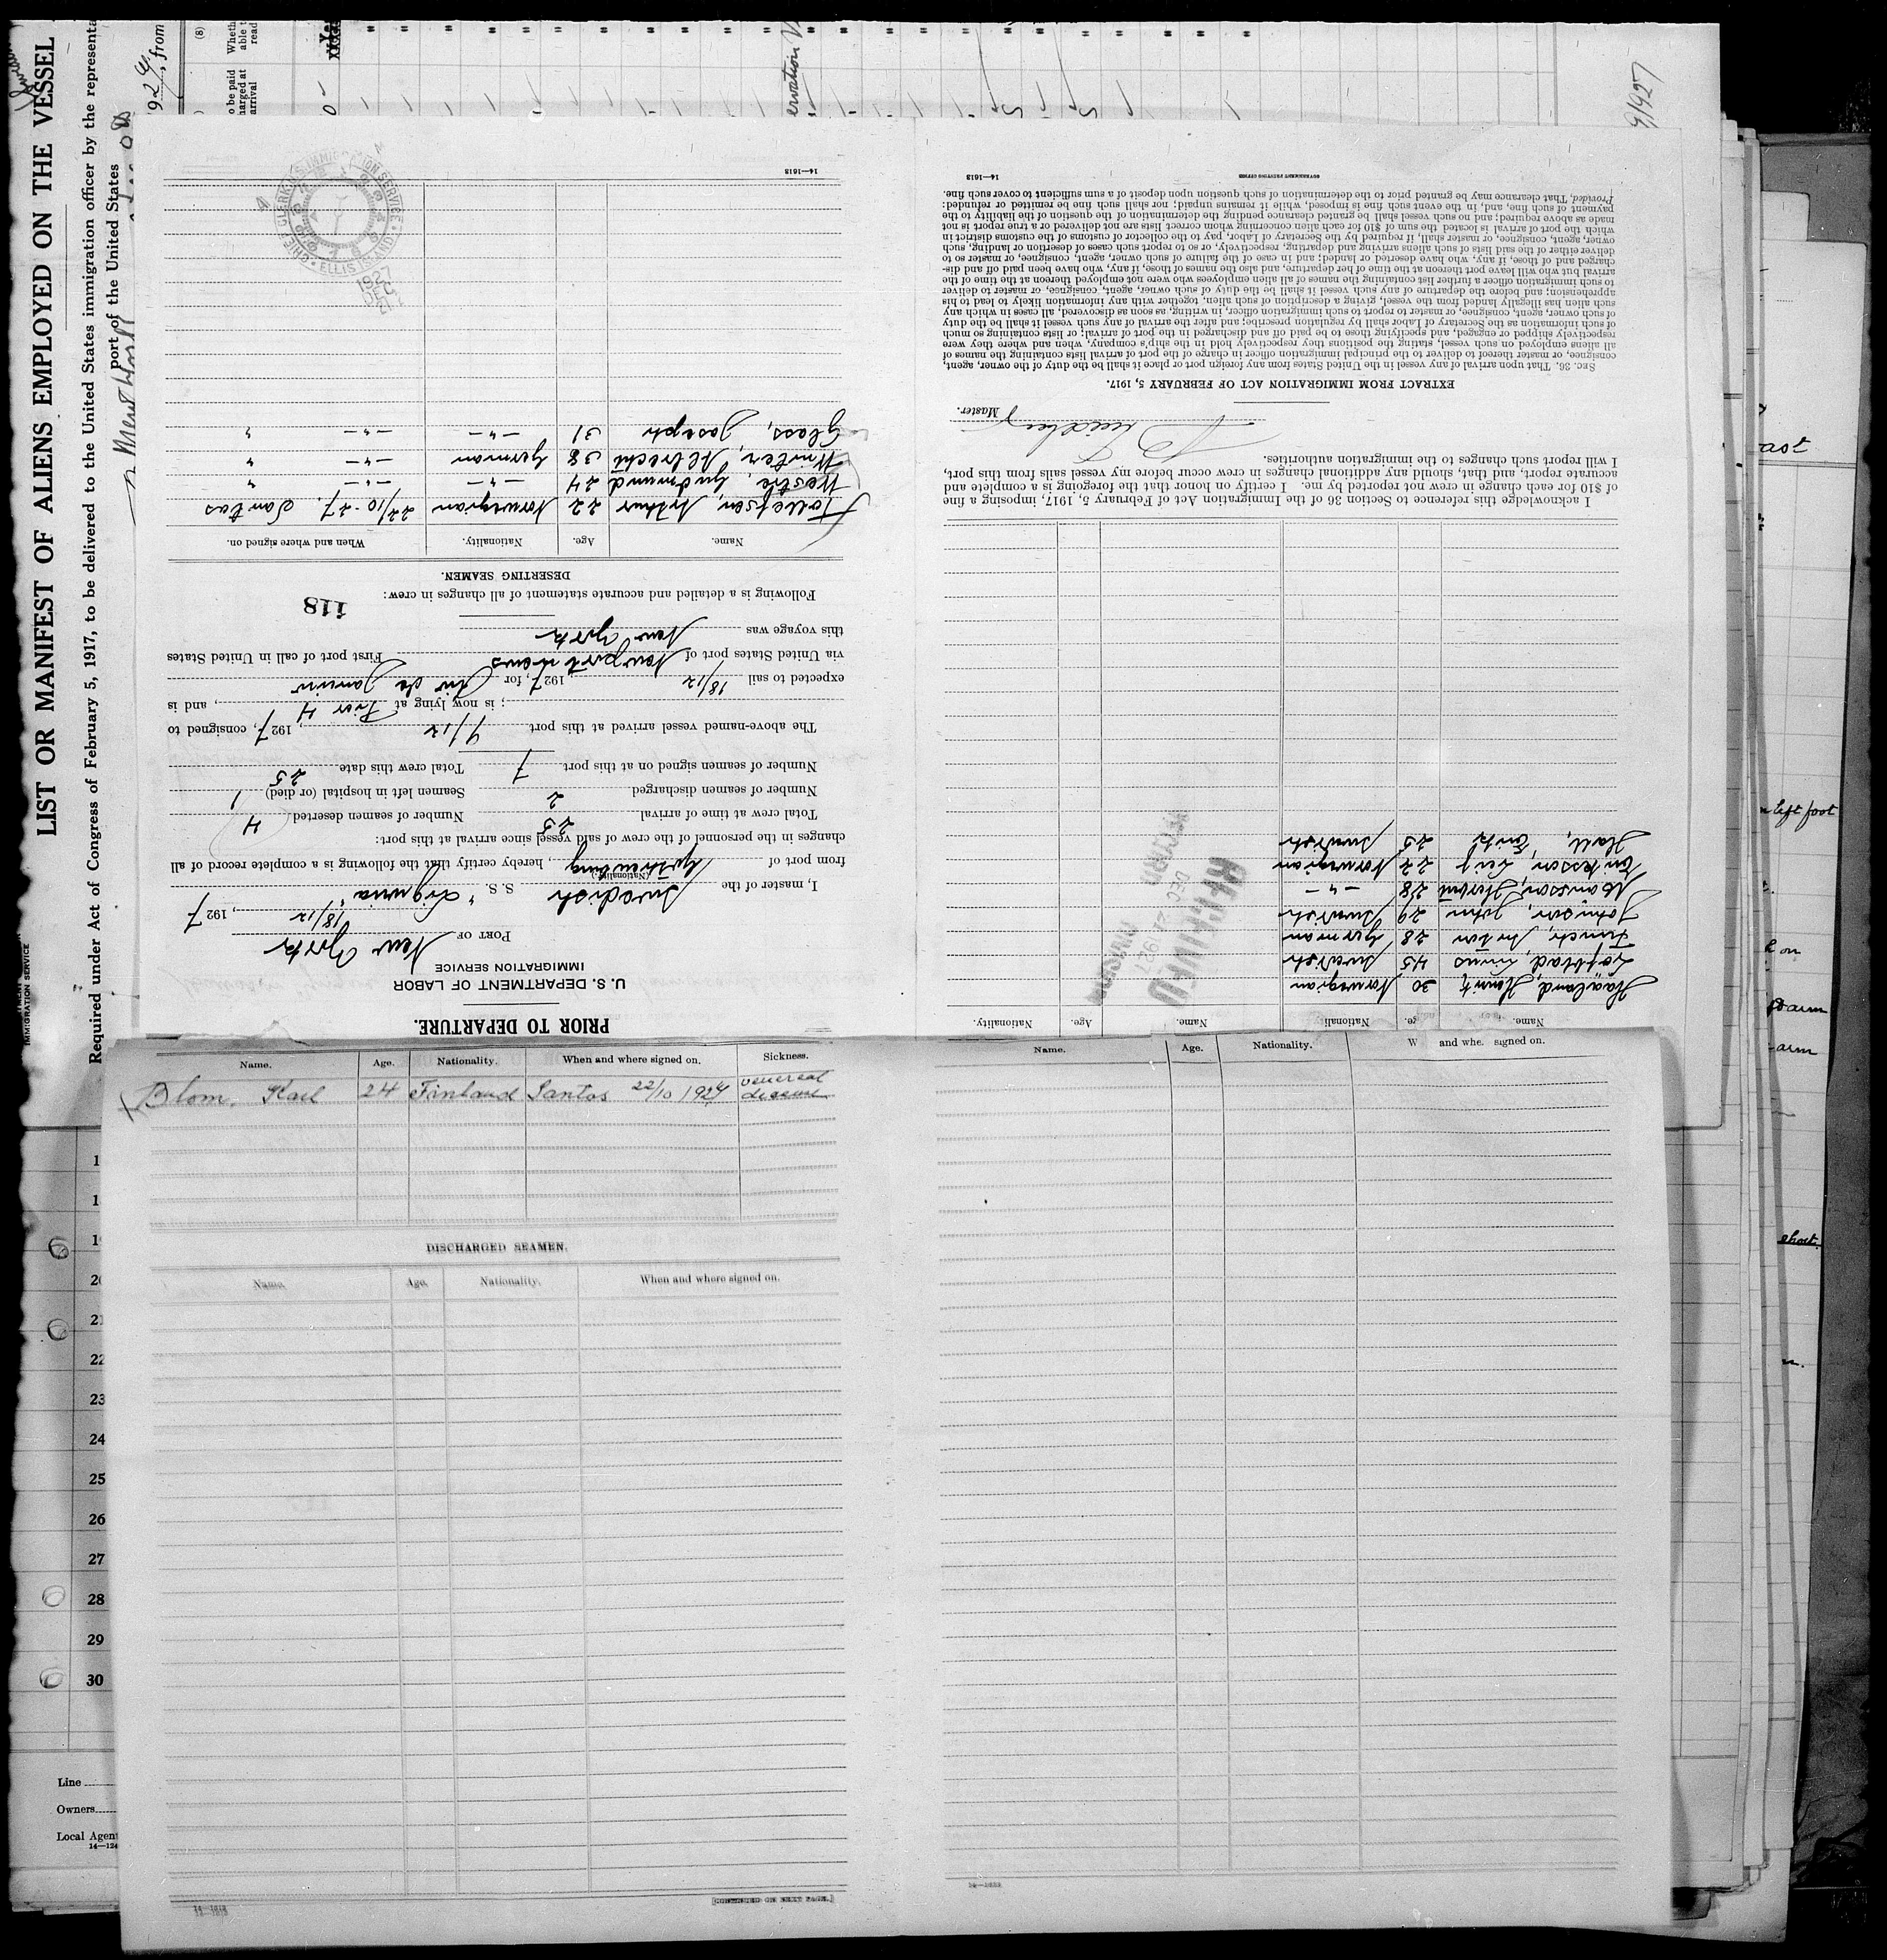 LIST OR MANIFEST OF ALIENS EMPLOYED ON THE VESSEL
Required under Act of Congress of February 5, 1917, to be delivered to the United States immigration officer by the representa
port of the United States
IMMIGRATION SERVICE
192 , from
(8)
Wheth
able t
read
o be paid
harged at
arrival
1927
PRIOR TO DEPARTURE.
U. S. DEPARTMENT OF LABOR
IMMIGRATION SERVICE
PORT OF New York
18/12, 1927
I, master of the Swedish S. S. "Liguria"
(Nationality)
from port of Gothenburg, hereby certify that the following is a complete record of all
changes in the personnel of the crew of said vessel since arrival at this port:
Total crew at time of arrival 25 Number of seamen deserted 4
Number of seamen discharged 2 Seamen left in hospital (or died) 1
Number of seamen signed on at this port 7 Total crew this date 25
The above-named vessel arrived at this port 9/12, 1927, consigned to
; is now lying at Pier 4, and is
expected to sail 18/12, 1927, for Rio de Janeiro
via United States port of Newport News First port of call in United States
this voyage was New York
Following is a detailed and accurate statement of all changes in crew:
118
DESERTING SEAMEN.
Name. Age. Nationality. When and where signed on.
Tollefsen, Arthur 22 Norwegian 22/10-27. Santos
Westre, Gudmund 24 -"- -"- "
Winter, Albrecht 38 German -"- "
Glass, Joseph 31 -"- -"- "
14—1618
CHIEF CLERK U. S. IMMIGRATION SERVICE
ELLIS ISLAND
1927
DEC 21
Name. Age. Nationality. Name. Age. Nationality.
Haaland, Hauritz 30 Norwegian
Löfblad, Linus 45 Swedish
Funck, Anton 28 German
Johnson, John 29 Swedish
Månsson, Helmut 28 -"-
Eriksson, Leif 22 Norwegian
Hall, Eritz 25 Swedish
RECEIVED
DEC 21 1927
RECORD
DIVISION
I acknowledge this reference to Section 36 of the Immigration Act of February 5, 1917, imposing a fine
of $10 for each change in crew not reported by me. I certify on honor that the foregoing is a complete and
accurate report, and that, should any additional changes in crew occur before my vessel sails from this port,
I will report such changes to the immigration authorities.
Master.
EXTRACT FROM IMMIGRATION ACT OF FEBRUARY 5, 1917.
SEC. 36. That upon arrival of any vessel in the United States from any foreign port or place it shall be the duty of the owner, agent,
consignee, or master thereof to deliver to the principal immigration officer in charge of the port of arrival lists containing the names of
all aliens employed on such vessel, stating the positions they respectively hold in the ship's company, when and where they were
respectively shipped or engaged, and specifying those to be paid off and discharged in the port of arrival; or lists containing so much
of such information as the Secretary of Labor shall by regulation prescribe; and after the arrival of any such vessel it shall be the duty
of such owner, agent, consignee, or master to report to such immigration officer, in writing, as soon as discovered, all cases in which any
such alien has illegally landed from the vessel, giving a description of such alien, together with any information likely to lead to his
apprehension; and before the departure of any such vessel it shall be the duty of such owner, agent, consignee, or master to deliver
to such immigration officer a further list containing the names of all alien employees who were not employed thereon at the time of the
arrival but who will leave port thereon at the time of her departure, and also the names of those, if any, who have been paid off and dis-
charged and of those, if any, who have deserted or landed; and in case of the failure of such owner, agent, consignee, or master so to
deliver either of the said lists of such aliens arriving and departing, respectively, or so to report such cases of desertion or landing, such
owner, agent, consignee, or master shall, if required by the Secretary of Labor, pay to the collector of customs of the customs district in
which the port of arrival is located the sum of $10 for each alien concerning whom correct lists are not delivered or a true report is not
made as above required; and no such vessel shall be granted clearance pending the determination of the question of the liability to the
payment of such fine, and, in the event such fine is imposed, while it remains unpaid; nor shall such fine be remitted or refunded:
Provided, That clearance may be granted prior to the determination of such question upon deposit of a sum sufficient to cover such fine.
14—1618 GOVERNMENT PRINTING OFFICE
Name. Age. Nationality. When and where signed on. Sickness.
Blom, Karl 24 Finland Santos 22/10 1927 venereal
disease
DISCHARGED SEAMEN.
Name. Age. Nationality. When and where signed on.
[CONTINUED ON NEXT PAGE.]
14—1618
Name. Age. Nationality. W and whe signed on.
20
21
22
23
24
25
26
27
28
29
30
Line
Owners
Local Agen
14—124
left foot
on
arm
arm
short